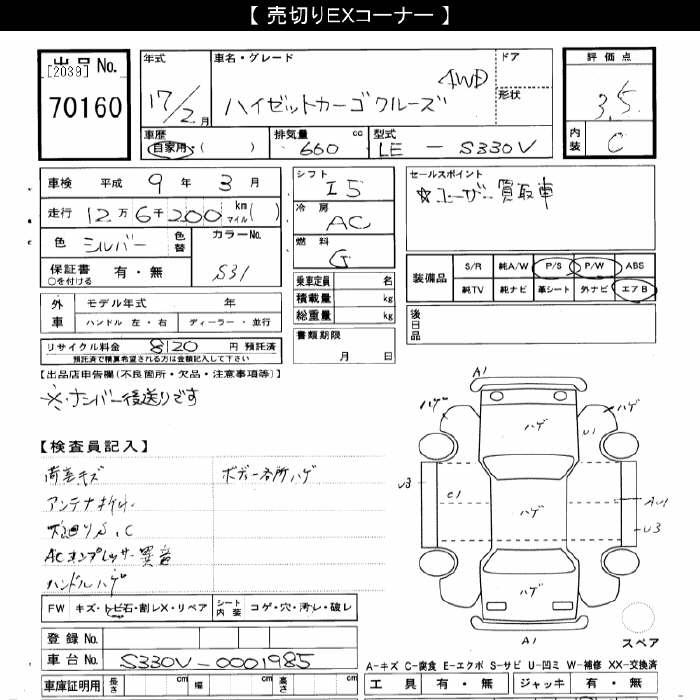 【 売切りEXコーナー 】
出品No.
[2039]
70160
年式
17/2月
車名・グレード
ハイゼットカーゴクルーズ 4WD
ドア
形状
評価点
3.5
内装
C
車歴
自家用・( )
排気量 cc
660
型式
LE - S330V
車検 平成 9 年 3 月
走行 12万 6千200 km マイル( )
色 シルバー 色替
カラーNo.
S31
保証書 有・無
○を付ける
外車 モデル年式 年
ハンドル 左・右 ディーラー・並行
リサイクル料金 8120 円 預託済
預託済で積算希望される方は金額記入して下さい
シフト I5
冷房 AC
燃料 G
乗車定員 名
積載量 kg
総重量 kg
書類期限
月 日
セールスポイント
☆ユーザー買取車
装備品 S/R 純A/W P/S P/W ABS
純TV 純ナビ 革シート 外ナビ エアB
後日品
【出品店申告欄(不良箇所・欠品・注意事項等)】
※ナンバー後送りです
【検査員記入】
荷室キズ
ボデー各所ハゲ
アンテナ折れ
下廻りS、C
ACコンプレッサー異音
ハンドルハゲ
FW キズ・トビ石・割レX・リペア シート内装 コゲ・穴・汚レ・破レ
登録No.
車台No. S330V-0001985
車庫証明用 長さ cm 幅 cm 高さ cm
A1
ハゲ
ハゲ
ハゲ
U1
U3
C1
ハゲ
AU1
U3
ハゲ
A1
スペア
A-キズ C-腐食 E-エクボ S-サビ U-凹ミ W-補修 XX-交換済
工具 有・無 ジャッキ 有・無